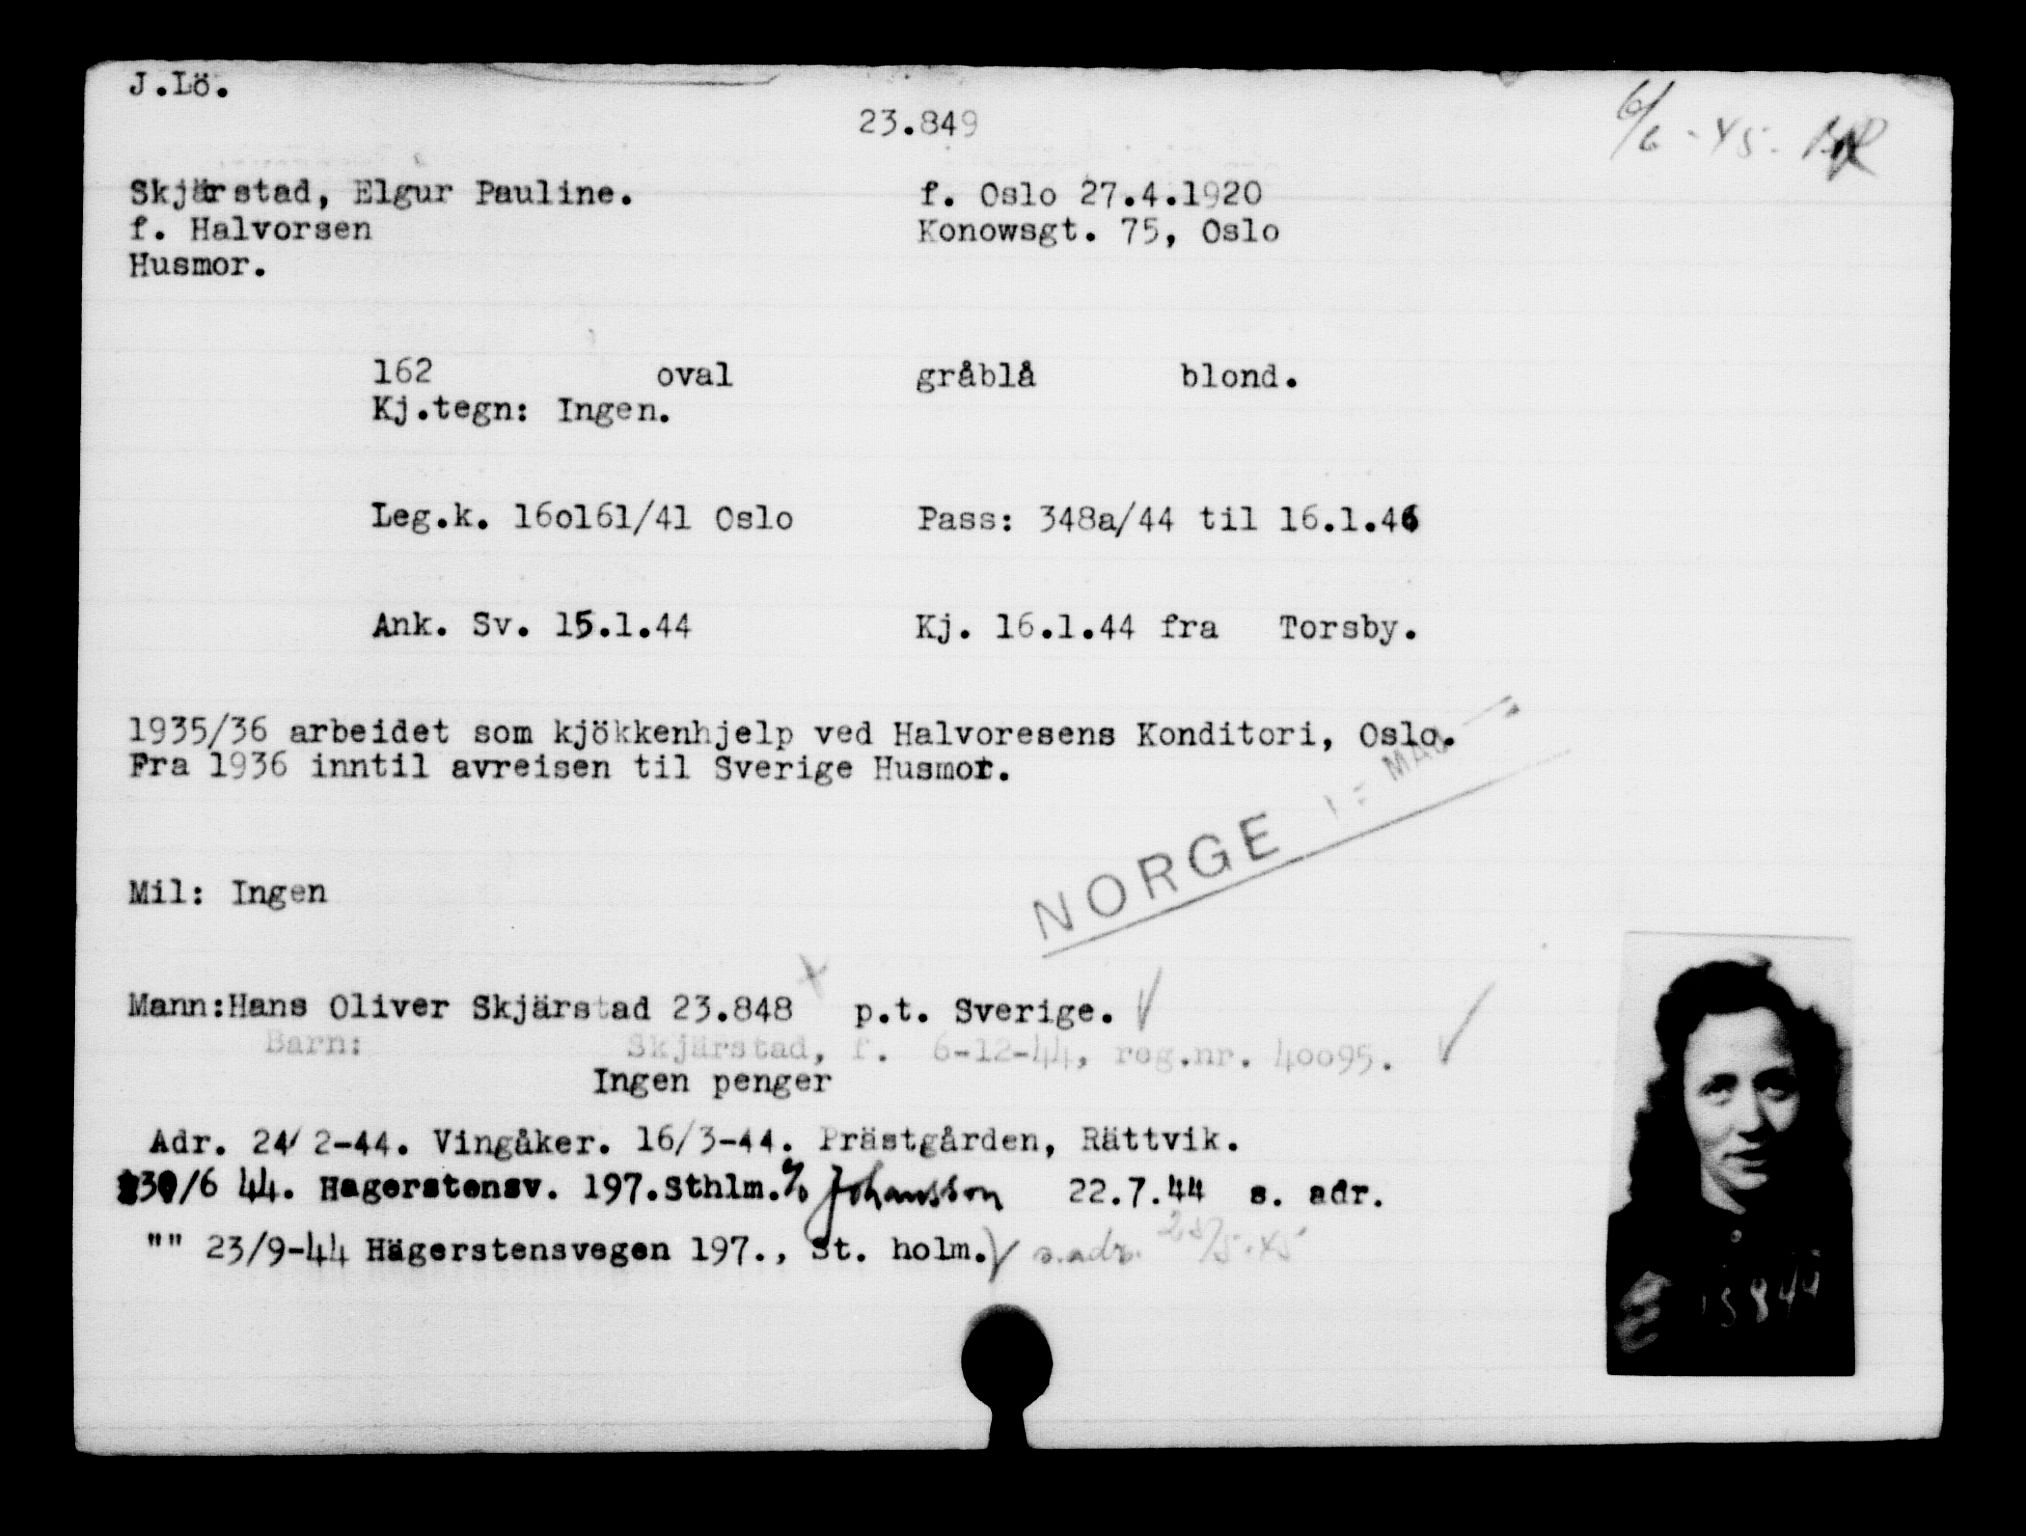 J.Lö.
23.849
6/6-45.
Skjärstad, Elgur Pauline. f. Oslo 27.4.1920
f. Halvorsen Konowsgt. 75, Oslo
Husmor.
162 oval gråblå blond.
Kj.tegn: Ingen.
Leg.k. 16o161/41 Oslo Pass: 348a/44 til 16.1.46
Ank. Sv. 15.1.44 Kj. 16.1.44 fra Torsby.
1935/36 arbeidet som kjökkenhjelp ved Halvoresens Konditori, Oslo.
Fra 1936 inntil avreisen til Sverige Husmor.
NORGE
Mil: Ingen
Mann:Hans Oliver Skjärstad 23.848 p.t. Sverige.
Barn: Skjärstad, f. 6-12-44, reg.nr. 40095.
Ingen penger
Adr. 24/2-44. Vingåker. 16/3-44. Prästgården, Rättvik.
30/6 44. Hagerstensv. 197.Sthlm. c/o Johansson 22.7.44 s. adr.
"" 23/9-44 Hägerstensvegen 197., St. holm. s.adr. 25/5-45